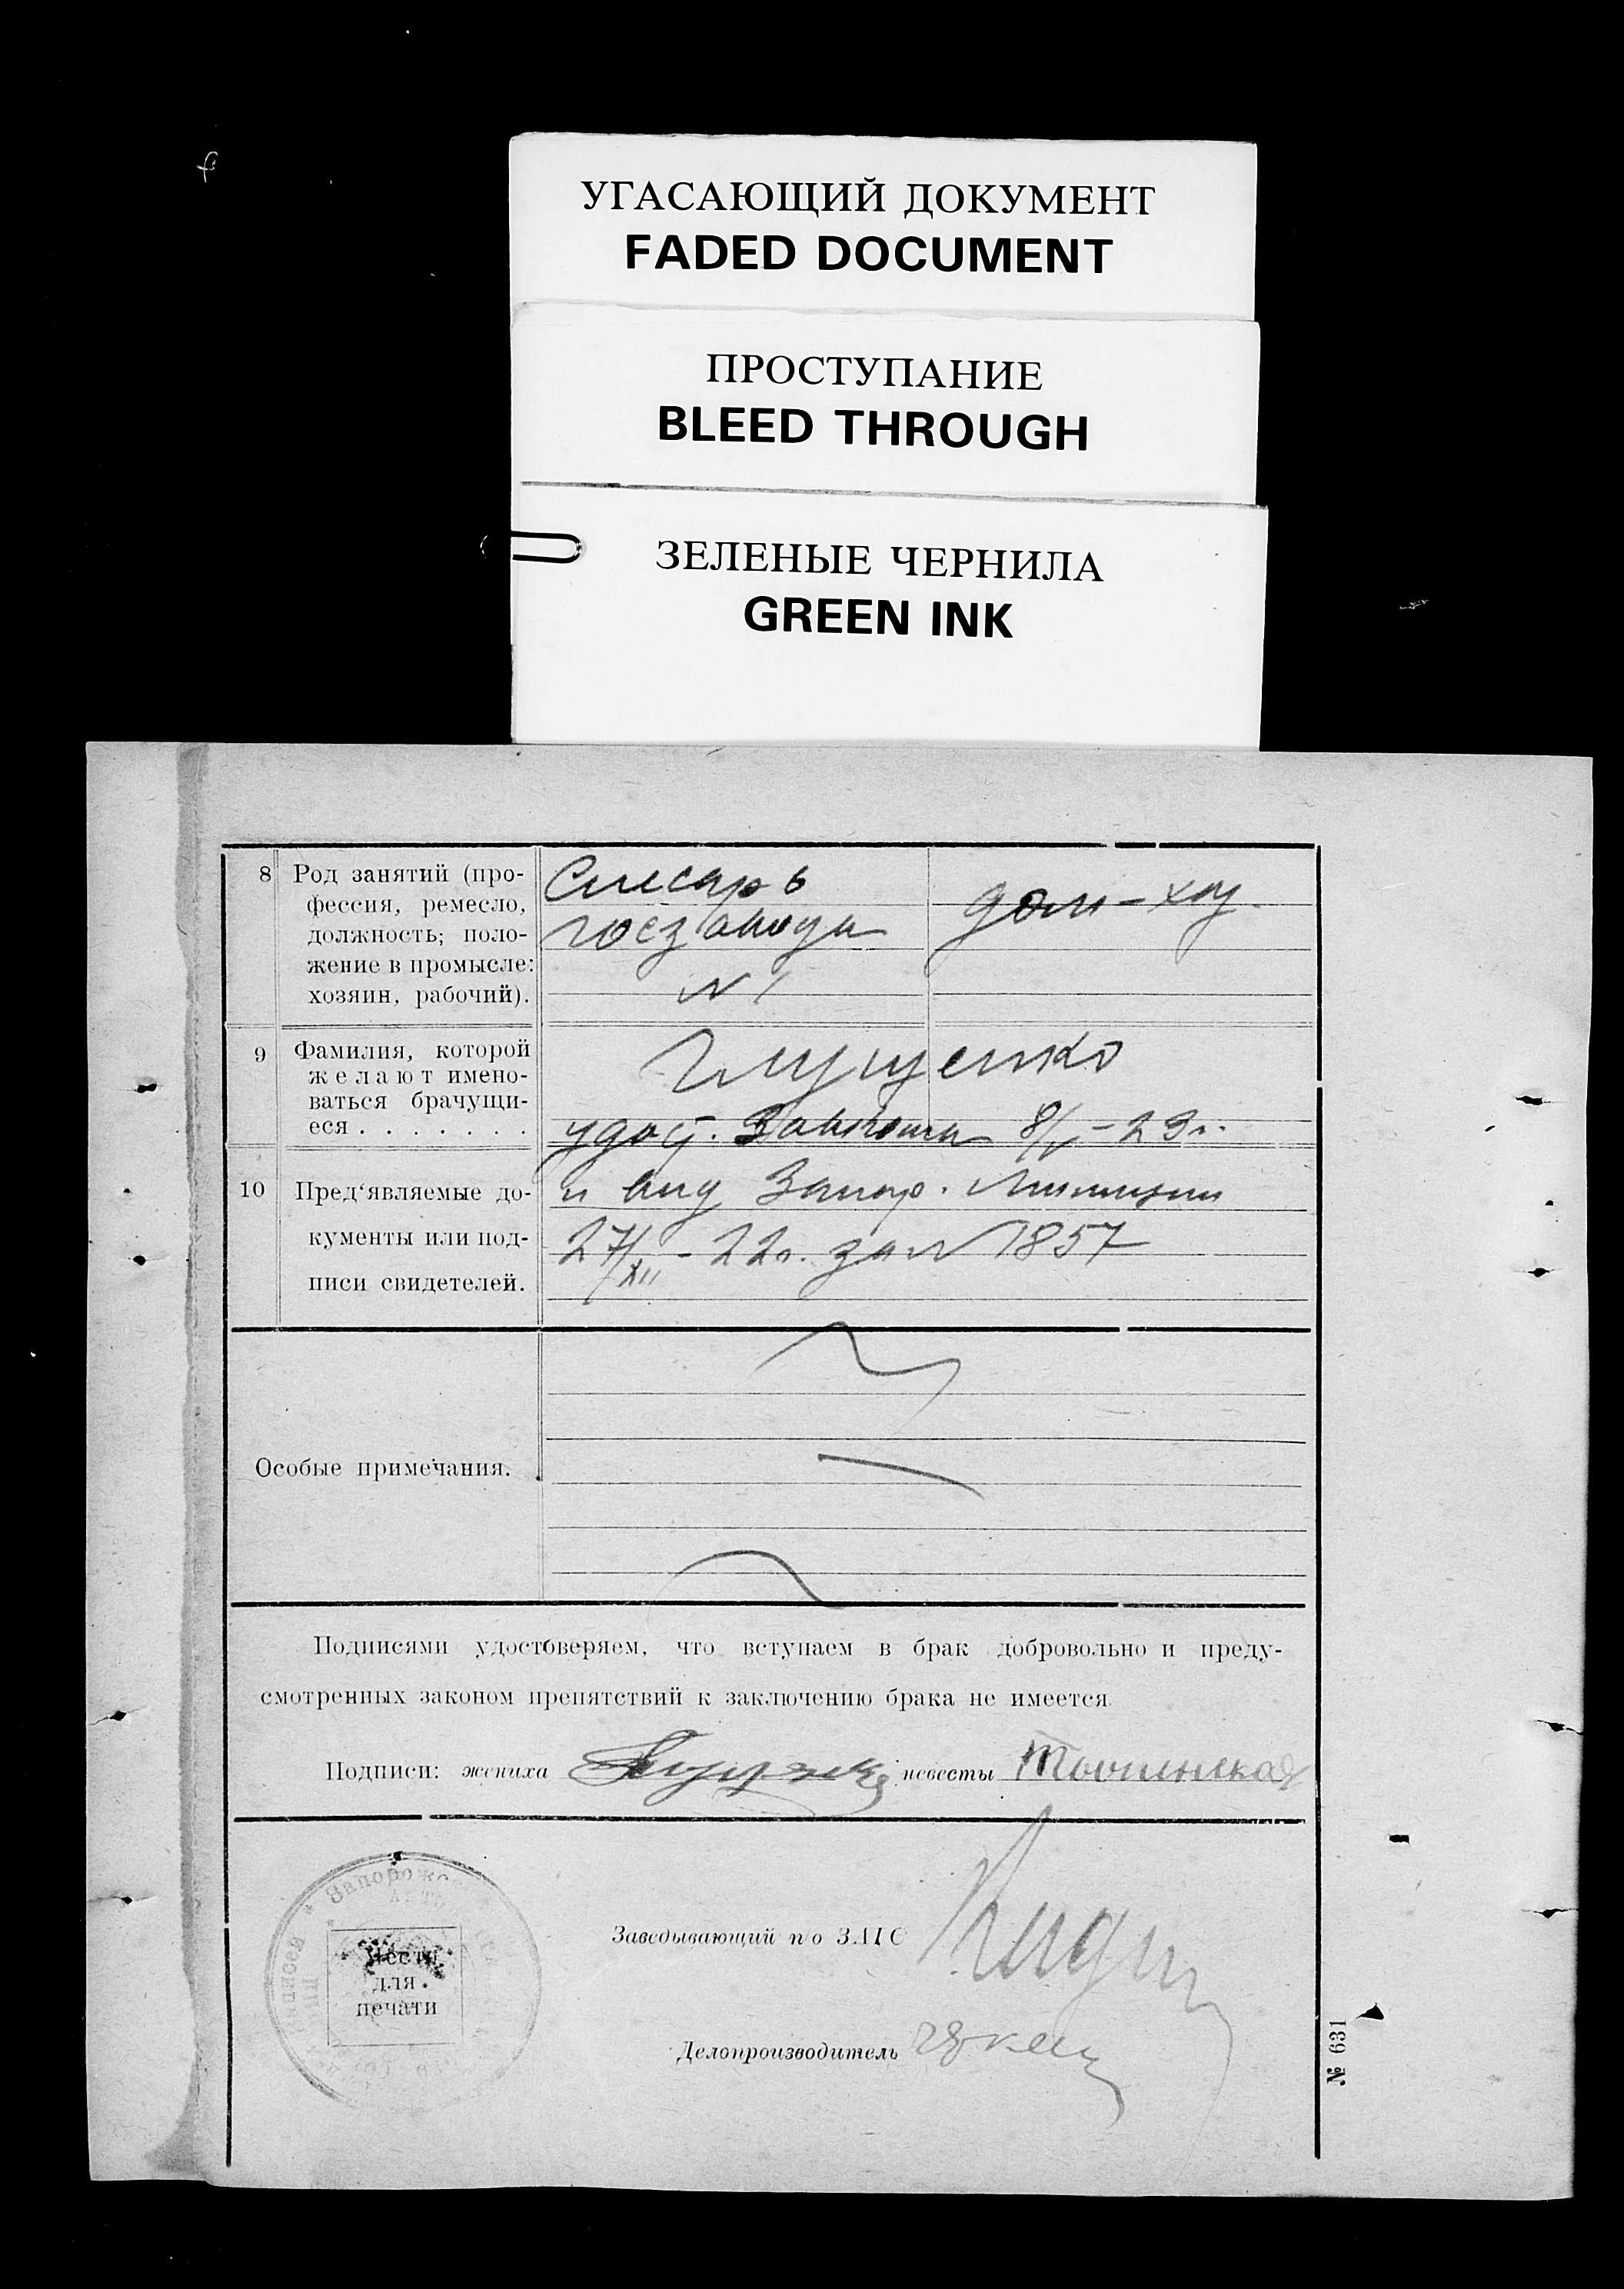 УГАСАЮЩИЙ ДОКУМЕНТ
FADED DOCUMENT
ПРОСТУПАНИЕ
BLEED THROUGH
ЗЕЛЕНЫЕ ЧЕРНИЛА
GREEN INK
8 Род занятий (про-
фессия, ремесло,
должность; поло-
жение в промысле:
хозяин, рабочий).
Слесарь
госзавода
№ 1
дом-хоз.
9 Фамилия, которой
желают имено-
ваться брачущи-
еся . . . . . . .
10 Пред‘являемые до-
кументы или под-
писи свидетелей.
удост. Завкома 8/V – 23 г.
и вид Запор. Милиции
27/XII – 22 г. за № 1857
Особые примечания.
Подписями удостоверяем, что вступаем в брак добровольно и преду-
смотренных законом препятствий к заключению брака не имеется
Подписи: жениха невесты
Запорожс
Место
для
печати
Заведывающий по ЗАГС
Делопроизводитель
№ 631